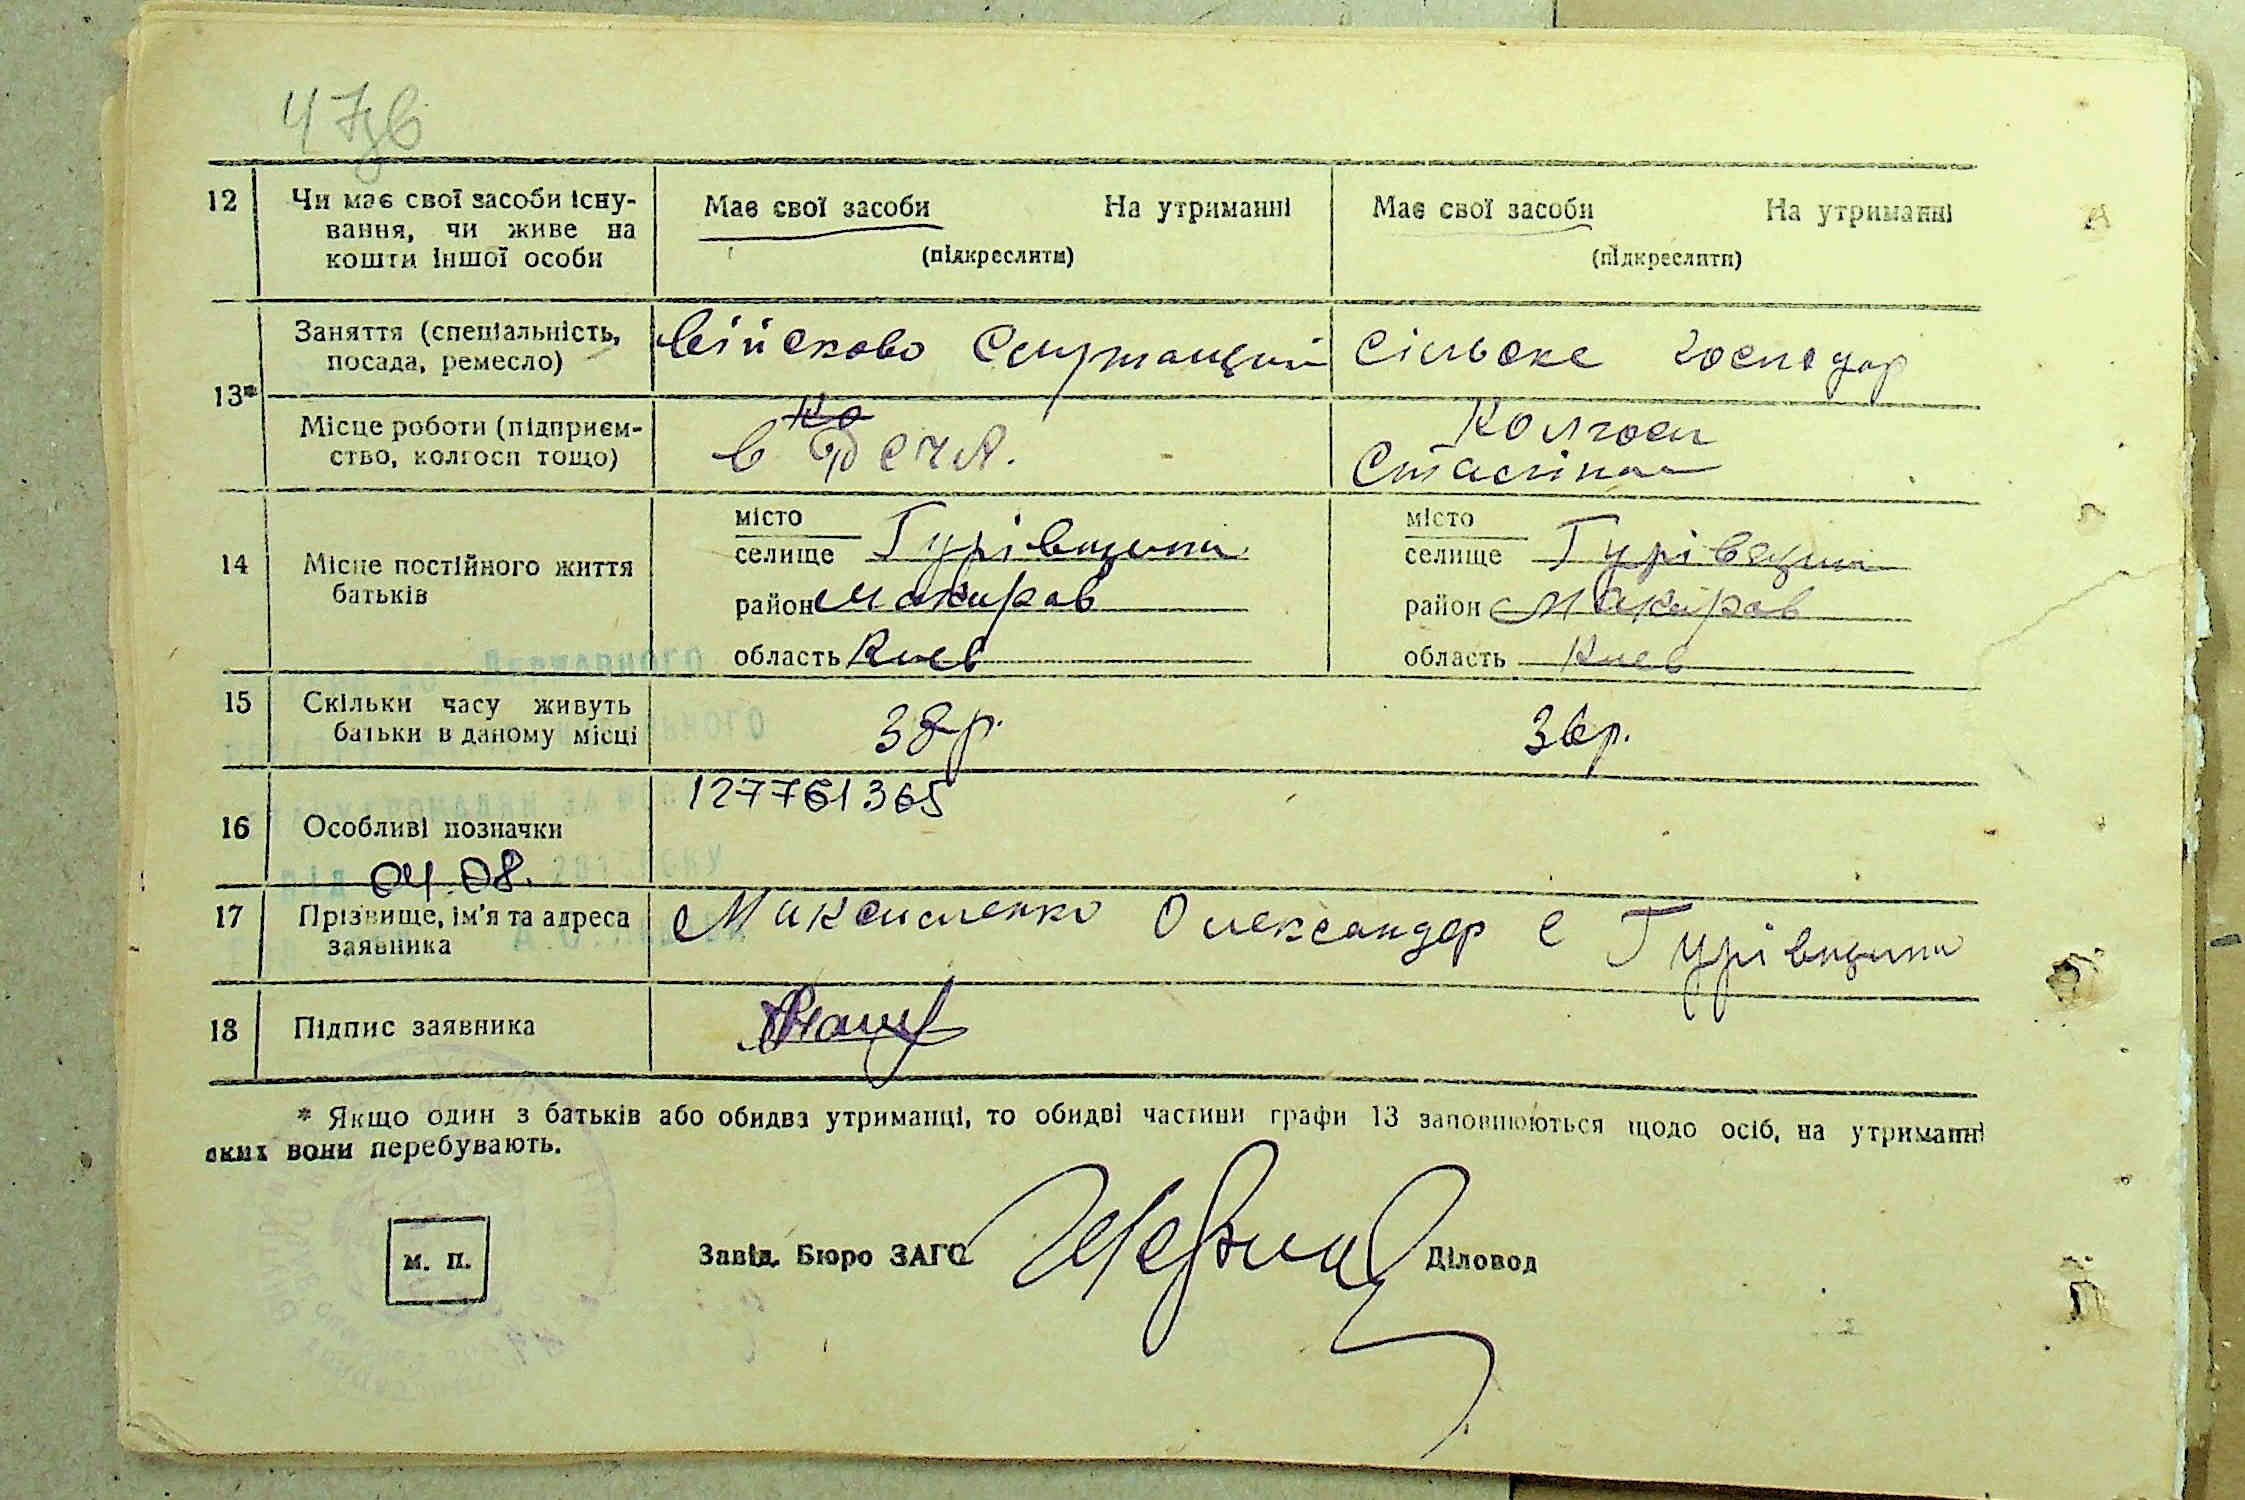 47зв
12 Чи має свої засоби існу-
вання, чи живе на
кошти іншої особи
Має свої засоби На утриманні
(підкреслити)
Має свої засоби На утриманні
(підкреслити)
13*
Заняття (спеціальність,
посада, ремесло)
Військово Служащий
Сільске господар
Місце роботи (підприєм-
ство, колгосп тощо)
в
Колгосп
14 Місце постійного життя
батьків
місто
селище Гурівщина
район Макаров
область Киев
місто
селище Гурівщина
район Макаров
область Киев
15 Скільки часу живуть
батьки в даному місці
38р.
36р.
16 Особливі позначки
127761365
04.08.
ДЕРЖАВНОГО
17 Прізвище, ім'я та адреса
заявника
Максименко Олександер с Гурівщина
18 Підпис заявника
* Якщо один з батьків або обидва утриманці, то обидві частини графи 13 заповнюються щодо осіб, на утриманні
яких вони перебувають.
М. П.
Завід. Бюро ЗАГС
Діловод